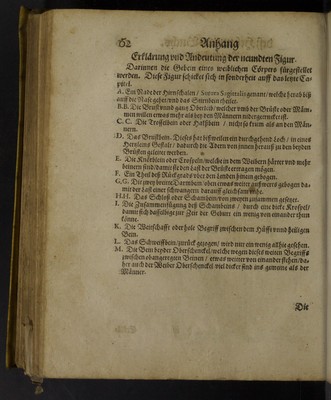 62 Anhang
Erklärung vnd Andeutung der neundten Figur.
Darinnen die Gebein eines weiblichen Cörpers fürgestellet
werden. Diese Figur schicket sich in sonderheit auff das letzte Ca-
pitel.
A. Ein Nade der Hirnschalen / Sutura Sagittalis genant / welche herab biß
auff die Nase gehet / vnd das Stirnbein theilet.
B.B. Die Brust wird gantz
willen etwas mehr als bey den Männern nidergetruckt ist.
C. C. Die Drosselbein oder Hälßlein / nicht so krum als an den Män-
nern.
D. Das Brustbein. Dieses hat bißweilen ein durchgehend Loch / in eines
Hertzleins Gestalt / dadurch die Adern von innen herauß zu den beyden
Brüsten geleitet werden.
E. Die Knöchlein oder Knöspeln / welche in den Weibern härter vnd mehr
beinern sind / damit sie den Last der Brüste ertragen mögen.
F. Ein Theil deß Rückgrads vber den Lenden hinein gebogen.
G.G. Die zwey breite Darmbein / oben etwas weiter außwerts gebogen da-
mit der Last einer schwangern darauff
H.H. Das Schloß oder Schambein / von zweyen zusammen gesetzt.
I. Die Zusammenfügung deß Schambeins / durch eine dicke Krospel /
damit sich dasselbige zur Zeit der Geburt ein wenig von einander thun
könne.
K. Die Weitschafft oder hole Begriff zwischen dem Hüfft vnnd heiligen
Bein.
L. Das Schweiffbein / zurück gezogen / wird nur ein wenig allhie gesehen.
M. Die Bein beyder Oberschenckel / welche wegen dieses weiten Begriffs
zwischen obangeregten Beinen / etwas weiter von einander stehen / da-
her auch der Weiber Oberschenckel viel dicker sind ins gemein als der
Männer.
Die